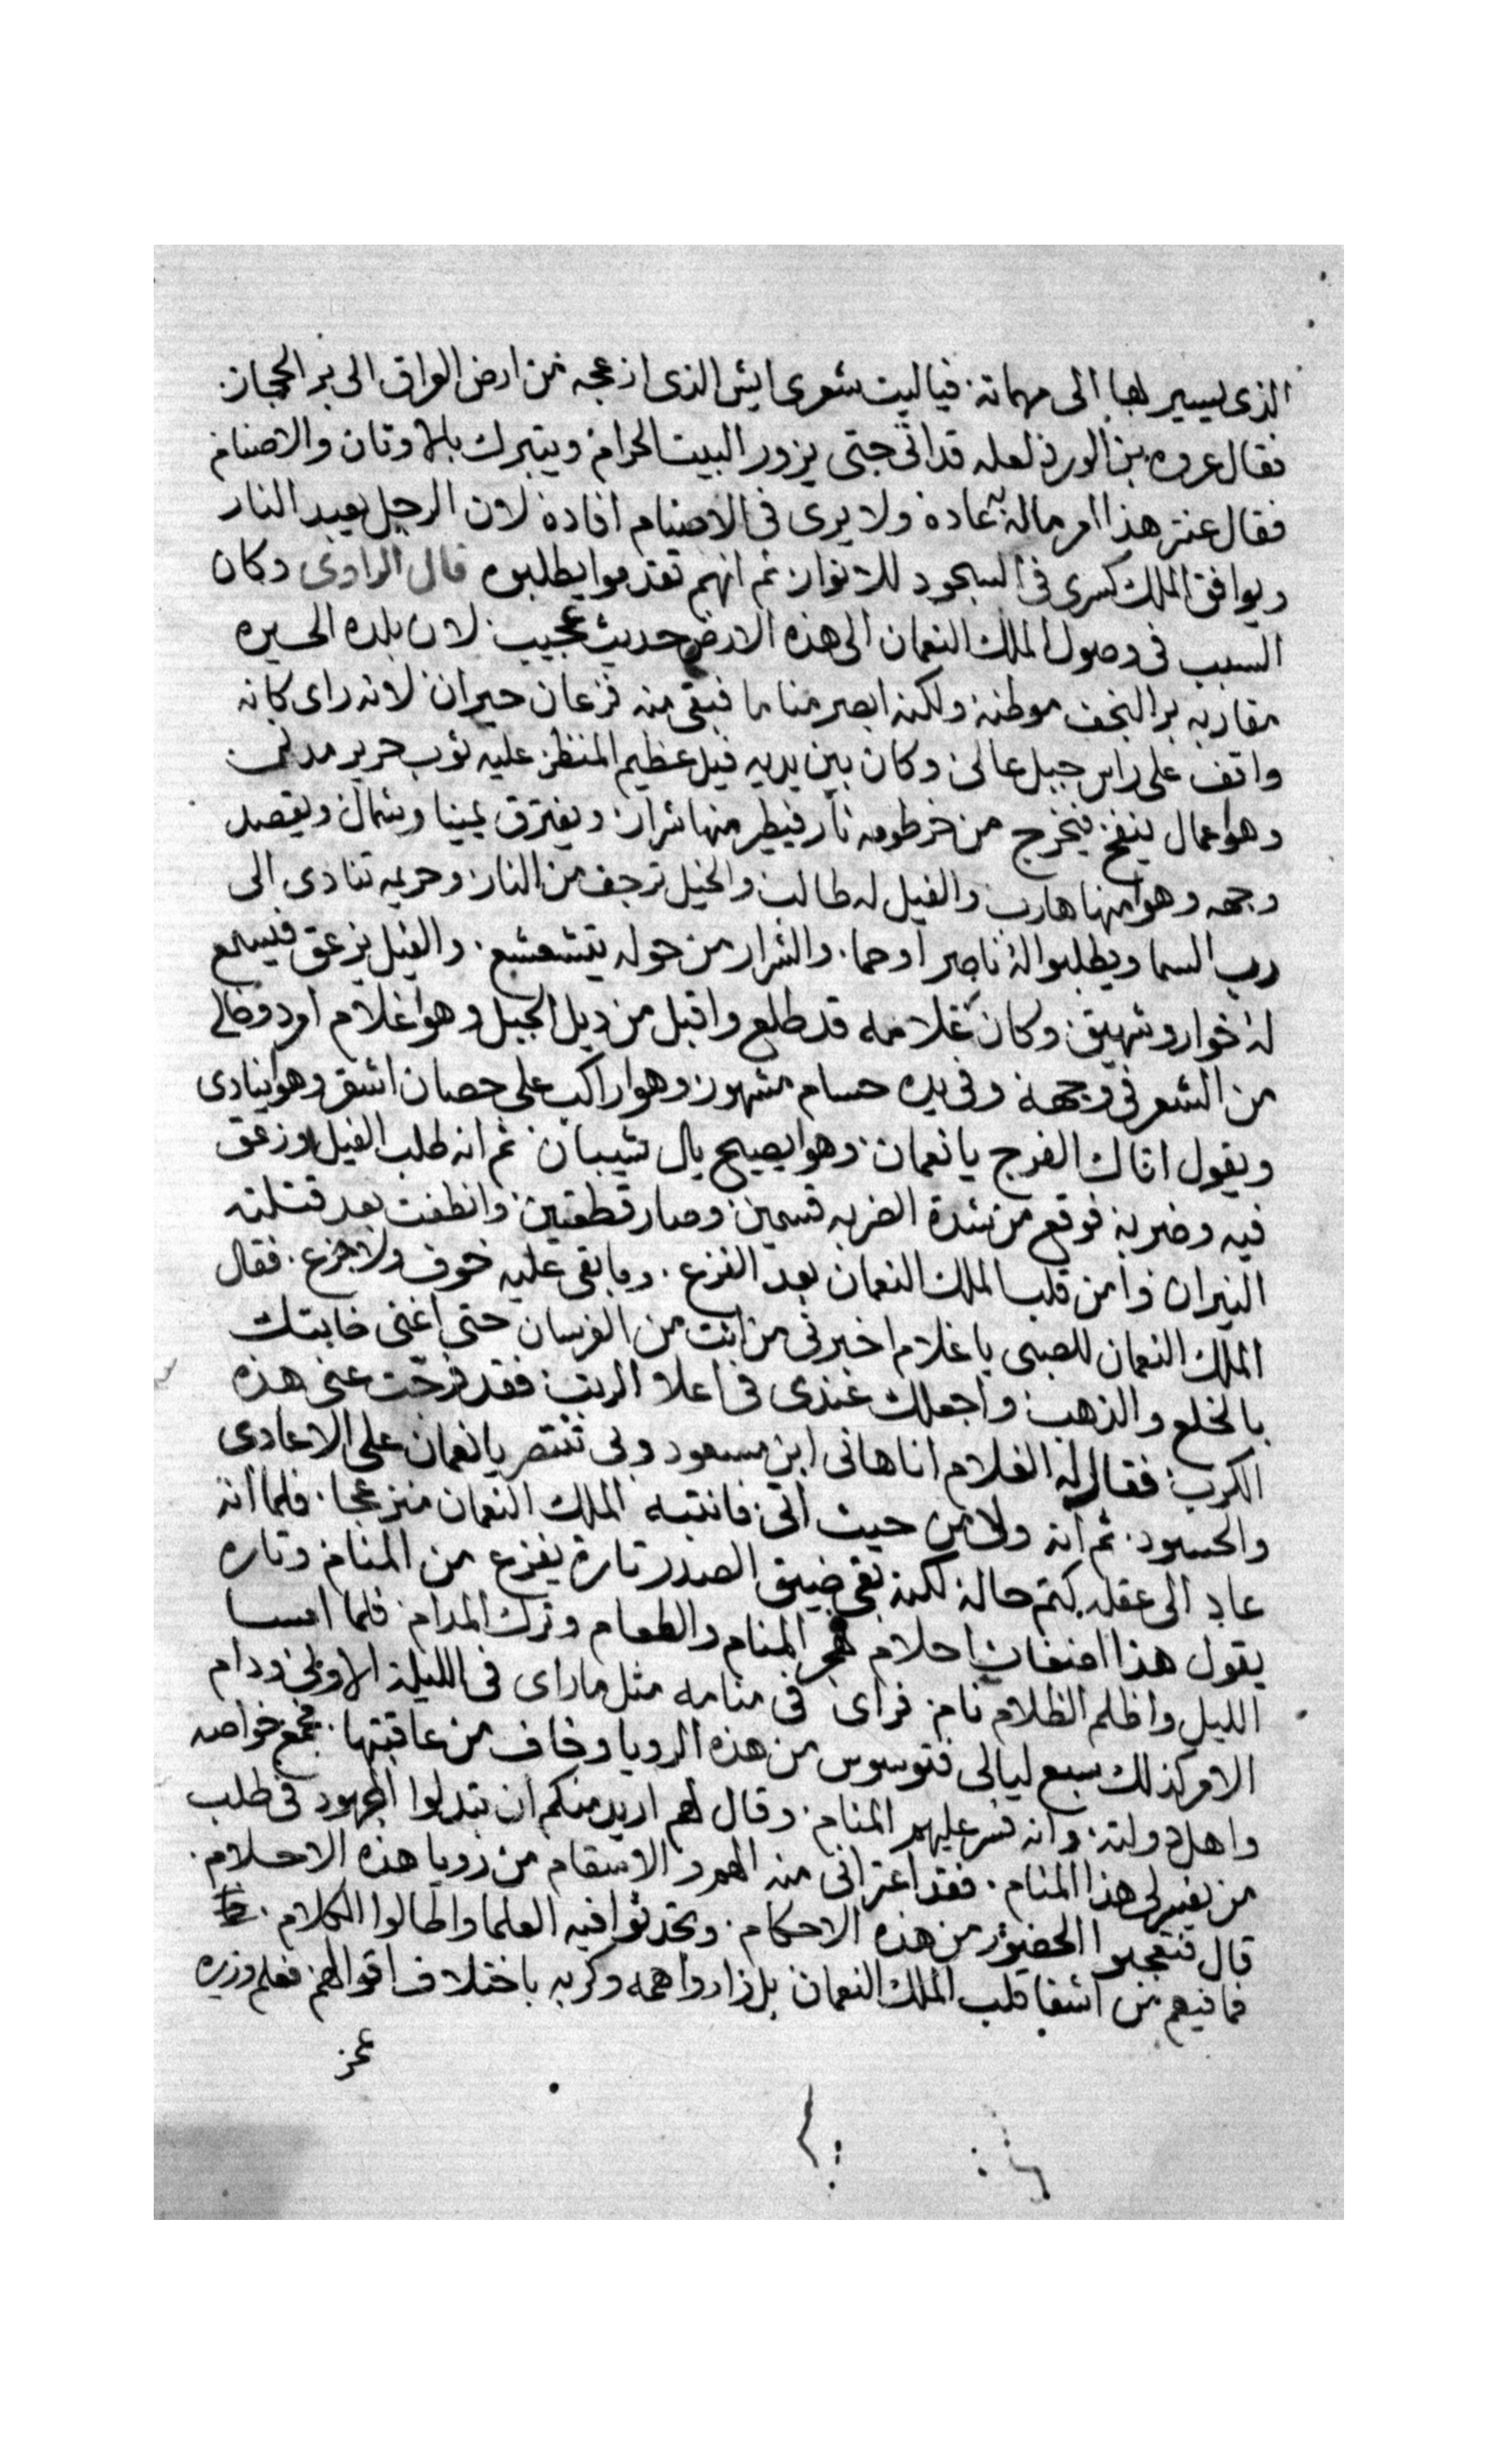 الذى يسير لها الى مهماته فياليت شعرى ايش الذى ازعجه من ارض العراق الى بر الحجاز
فقال عروه بن الورد لعله قد اتى حتى يزور البيت الحرام ويتبرك بالاوتان والاصنام
فقال عنتر هذا امر ماله به عادة ولا يرى فى الاصنام افادة لان الرجل يعبد النار
ويوافق الملك كسرى فى السجود للانوار ثم انهم تقدموا يطلبوه قال الراوى وكان
السبب فى وصول الملك النعمان الى هذه الارض حديث عجيب لان بلده الحيره
مقاربه بر النجف موطنه ولكنه ابصر مناما فبقى منه فزعان حيران لانه راى كانه
واقف على راس جبل عالى وكان بين يديه فيل عظيم المنظر عليه ثوب حرير
وهوا عمال ينفخ فيخرج من خرطومه نار فيطير منها شرار ويفترق يمينا وشمال ويقصد
وجهه وهوا منها هارب والفيل له طالب والخيل ترجف من النار وحريمه تنادى الى
رب السما ويطلبوا له ناصر او حما والشرار من حوله يتشعشع والفيل يزعق فيسمع
له خوار وشهيق وكان غلامه قد طلع واقبل من ديل الجبل وهوا غلام امرد وخالى
من الشعر فى وجهه وفى يده حسام مشهور وهوا راكب على حصان اشقر وهوا ينادى
ويقول اتاك الفرج يا نعمان وهوا يصيح يال شيبان ثم انه طلب الفيل وزعق
فيه وضربه فوقع من شدة الضربه قسمين وصار قطعتين وانطفت بعد قتلته
النيران وامن قلب الملك النعمان بعد الفزع وما بقى عليه خوف ولا جزع فقال
الملك النعمان للصبى يا غلام اخبرنى من انت من الفرسان حتى اغنى فاقتك
بالخلع والذهب واجعلك عندى فى اعلا الرتب فقد فرجت عنى هذه
الكرب فقال له الغلام انا هانى ابن مسعود وبى تنتصر يا نعمان على الاعادى
والحسود ثم انه ولى من حيث اتى فانتبه الملك النعمان منزعجا فلما انه
عاد الى عقله كتم حاله لكنه بقى ضيق الصدر تارة يفزع من المنام وتاره
يقول هذا اضغاث احلام هجر المنام والطعام وترك المدام فلما امسا
الليل واظلم الظلام نام فراى فى منامه مثل ما راى فى الليلة الاولى ودام
الامر كذلك سبع ليالى فتوسوس من هذه الرويا وخاف من عاقبتها فجمع خواصه
واهل دولته وانه فسر عليهم المنام وقال لهم اريد منكم ان تبدلوا المجهود فى طلب
من يفسر لى هذا المنام فقد اعترانى منه الهم والاسقام من رويا هذه الاحلام
قال فتعجبوا الحضور من هذه الاحكام وتحدثوا فيه العلما واطالوا الكلام
فما فيهم من اشفا قلب الملك النعمان بل زادوا همه وكربه باختلاف اقوالهم فعلم وزيره